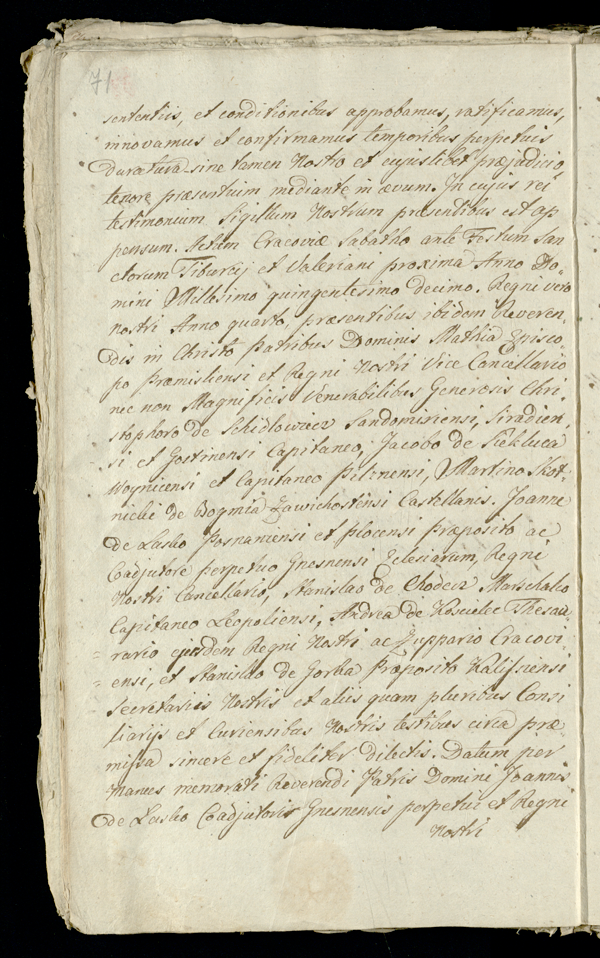 71
sententiis, et conditionibus approbamus, ratificamus,
innovamus et confirmamus temporibus perpetuis
duratura sine tamen Nostro et cujuslibet præjudicio
tenore præsentium mediante in ævum. In cujus rei
testimonium Sigillum Nostrum præsentibus est ap
pensum. Actum Cracoviæ Sabatho ante Festum San
ctorum Tiburcij et Valeriani proxima Anno Do=
mini Millesimo quingentesimo decimo. Regni vero
nostri Anno quarto, præsentibus ibidem Reveren,
dis in Christo Patribus Dominis Mathia Episco
po Præmisliensi et Regni Nostri Vice Cancellario
nec non Magnificis Venerabilibus Generosis Chri
stophoro de Schidlowiecz Sandomiriensi, Siradien
si et Gostinensi Capitaneo, Jacobo de Siekluca
Woynicensi et Capitaneo Pilznensi, Martino Skot=
nicki de Bogmia Zawichostensi Castellanis. Joanne
de Lasko Posnaniensi et plocensi Præposito ac
Coadjutore perpetuo Gnesnensi Eclesiarum, Regni
Nostri Cancellario, Stanislao de Chodecz Marschalco
Capitaneo Leopoliensi, Andrea de Koscielec Thesau
rario ejusdem Regni Nostri ac Zuppario Cracovi
ensi, et Stanislao de Gorka Præposito Kalisiensi
Secretariis Nostris et aliis quam pluribus Consi
liarijs et Curiensibus Nostris testibus circa præ=
missa sincere et fideliter dilectis. Datum per
Manus memorati Reverendi Patris Domini Joannis
de Lasko Coadjutoris Gnesnensis perpetui et Regni
Nostri